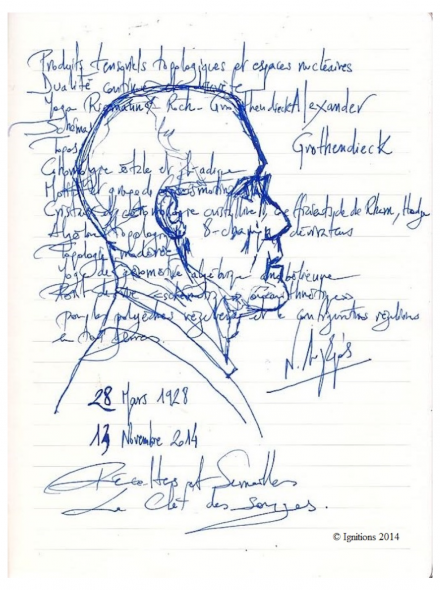 Produits tensoriels topologiques et espaces nucléaires
Dualité continue et discrète
Yoga Riemann-Roch-Grothendieck Alexander
Schémas
Grothendieck
Topos
Cohomologie étale et l-adique
Motifs et groupe de
Cristaux et cohomologie cristalline, coefficients de de Rham, Hodge
Algèbre topologique, ∞-champs, dérivateurs
Topologie modérée
Yoga de géométrie algébrique anabélienne
pour les polyèdres réguliers et les configurations régulières
en tous genres
28 Mars 1928
13 Novembre 2014
Récoltes et Semailles
La Clef des Songes.
© Ignitions 2014